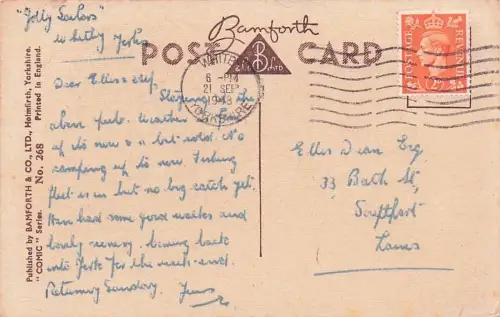 "Jolly Sailors"
Whitby Yorks
Bamforth
POST CARD
B
& CO LTD
WHITBY
6 - PM
21 SEP
1948
YORKSHIRE
POSTAGE
REVENUE
Published by BAMFORTH & CO., LTD., Holmfirth, Yorkshire.
"COMIC" Series. No. 268 Printed in England.
Dear Ellis &
Staying at the
above pub. Weather fine
up to now & a bit cold. No
camping up to now. Fishing
fleet is in but no big catch yet.
Have had some good walks and
lovely scenery, coming back
into York for the week-end.
Returning Sunday.
Ellis Dean Esq
33 Bath St,
Southport
Lancs